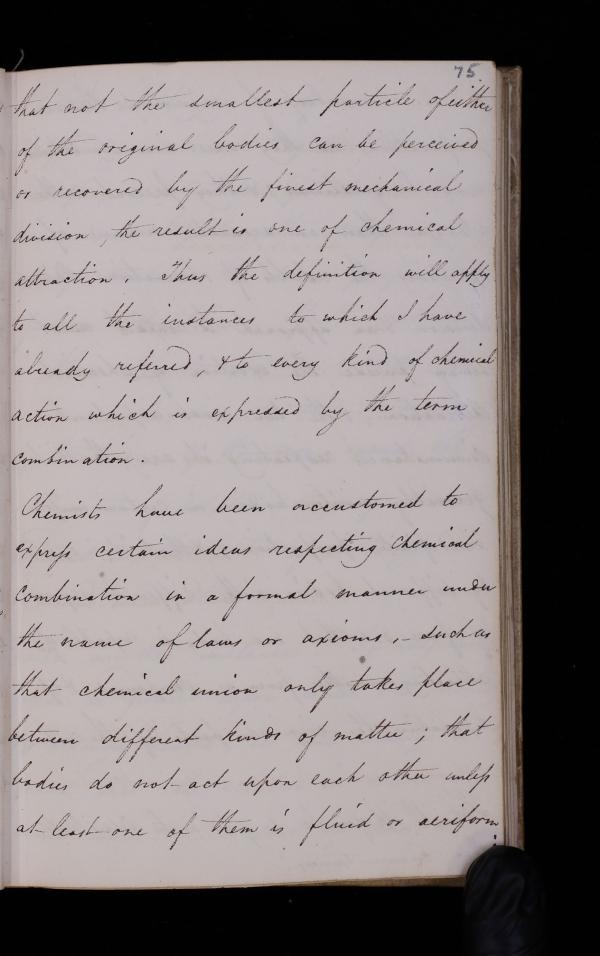 75.
that not the smallest particle of either
of the original bodies can be perceived
or recovered by the finest mechanical
division, the result is one of chemical
attraction. Thus the definition will apply
to all the instances to which I have
already referred, & to every kind of chemical
action which is expressed by the term
combination.
Chemists have been accustomed to
express certain ideas respecting chemical
combination in a formal manner under
the name of laws or axioms, – such as
that chemical union only takes place
between different kinds of matter; that
bodies do not act upon each other unless
at least one of them is fluid or aeriform